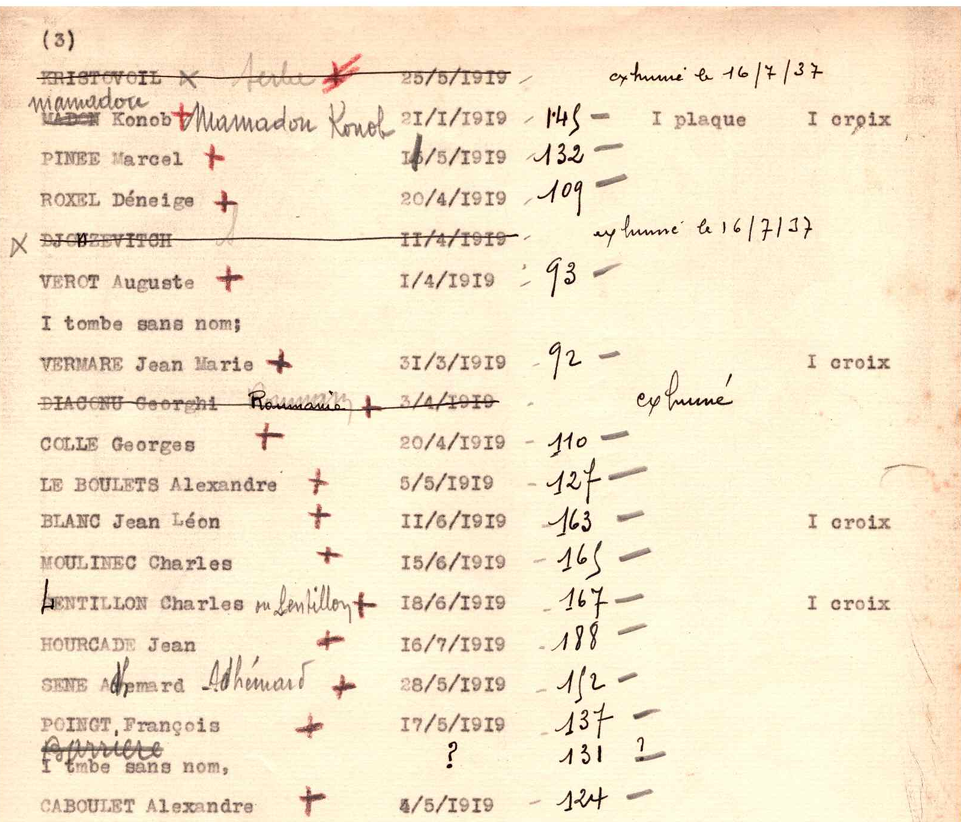 (3)
KRISTOVOIL Serbe 25/5/1919 exhumé le 16/7/37
mamadou
MADON Konob Mamadou Konob 2I/I/I9I9 145 I plaque I croix
PINEE Marcel 5/5/I9I9 132
ROXEL Déneige 20/4/I9I9 109
DJOUZEVITCH II/4/I9I9 exhumé le 16/7/37
VEROT Auguste I/4/I9I9 93
I tombe sans nom;
VERMARE Jean Marie 3I/3/I9I9 92 I croix
DIACONU Georghi Roumain 3/4/I9I9 exhumé
COLLE Georges 20/4/I9I9 110
LE BOULETS Alexandre 5/5/I9I9 127
BLANC Jean Léon II/6/I9I9 163 I croix
MOULINEC Charles I5/6/I9I9 165
LENTILLON Charles ou Lentillon I8/6/I9I9 167 I croix
HOURCADE Jean I6/7/I9I9 188
SENE Adhemard Adhémard 28/5/I9I9 152
POINGT, François I7/5/I9I9 137
Barrière ? 131 ?
I tmbe sans nom,
CABOULET Alexandre 4/5/I9I9 124